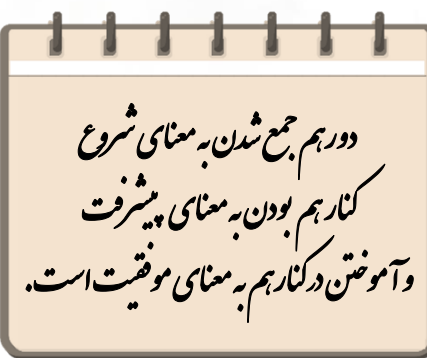 دورهم جمع شدن به معنای شروع
کنار هم بودن به معنای پیشرفت
و آموختن در کنار هم به معنای موفقیت است.